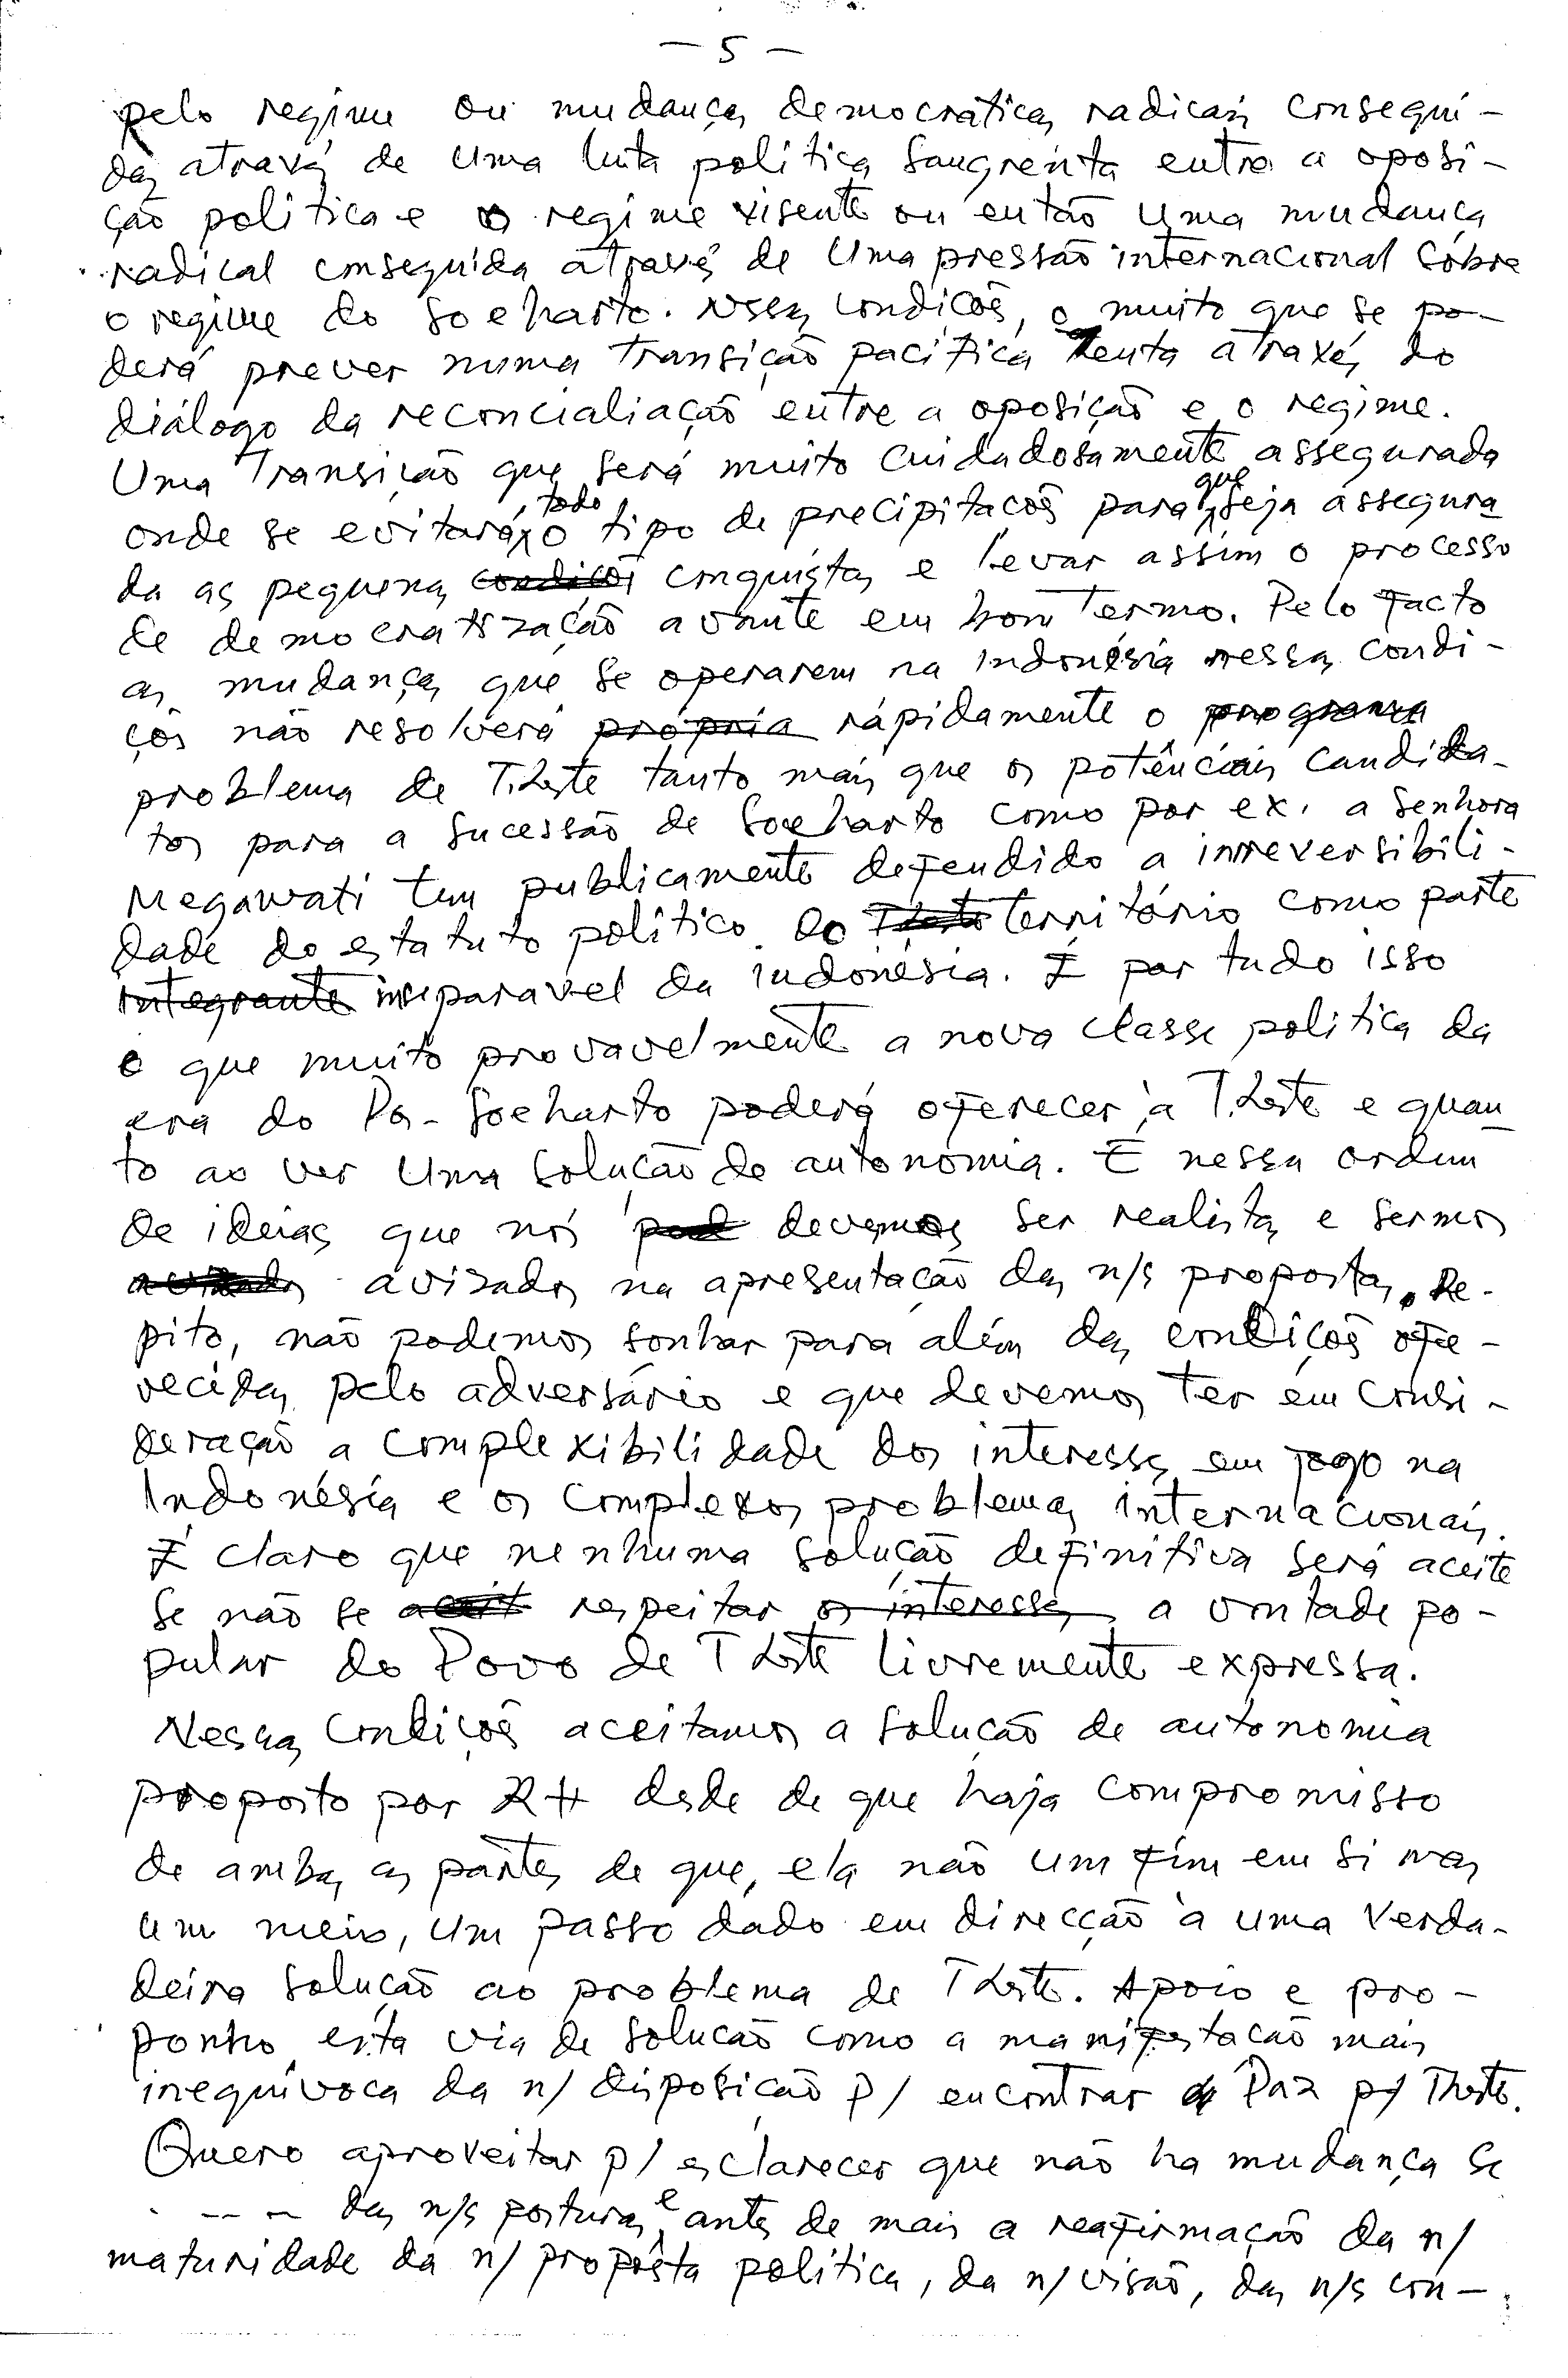 - 5 -
pelo regime ou mudanças democráticas radicais consegui-
das através de uma luta política sangrenta entre a oposi-
ção política e o regime visente ou então uma mudança
radical conseguida através de uma pressão internacional sobre
o regime do Soeharto. Nessas condições, o muito que se po-
derá prever numa transição pacífica lenta através do
diálogo da reconcialiação entre a oposição e o regime.
Uma transição que será muito cuidadosamente assegurada
onde se evitará, todo o tipo de precipitações para que seja assegura
da as pequenas condições conquistas e levar assim o processo
de democratização avante em bom termo. Pelo facto
as mudanças que se operarem na Indonésia nessas condi-
ções não resolverá própria rápidamente o programa
problema de T. Leste tanto mais que os potênciais candida-
tos para a sucessão de Soeharto como por ex. a senhora
Megawati tem publicamente defendido a irreversibili-
dade do estatuto político do território como parte
integrante inseparável da Indonésia. É por tudo isso
o que muito provavelmente a nova classe política da
era do Pós-Soeharto poderá oferecer à T. Leste e quan
to ao ver uma solução de autonomia. É nessa ordem
de ideias que nós pod devemos ser realistas e sermos
avizados avizados na apresentação das n/s propostas. Re-
pito, não podemos sonhar para além das condições ofe-
recidas pelo adversário e que devemos ter em consi-
deração a complexibilidade dos interesses em jogo na
Indonésia e os complexos problemas internacionais.
É claro que nenhuma solução definitiva será aceite
se não se aceit respeitar os interesses a vontade po-
pular do Povo de T Leste livremente expressa.
Nessas condições aceitamos a solução de autonomia
proposto por RH desde de que haja compromisso
de ambas as partes de que, ela não um fim em si mas
um meio, um passo dado em direcção à uma verda-
deira solução ao problema de T Leste. Apoio e pro-
ponho esta via de solução como a manifestação mais
inequívoca da n/ disposição p/ encontrar a Paz p/ TLeste.
Quero aproveitar p/ esclarecer que não ha mudança se
. - - - das n/s posturas, e antes de mais a reafirmação da n/
maturidade da n/ propôsta política, da n/ visão, das n/s con-